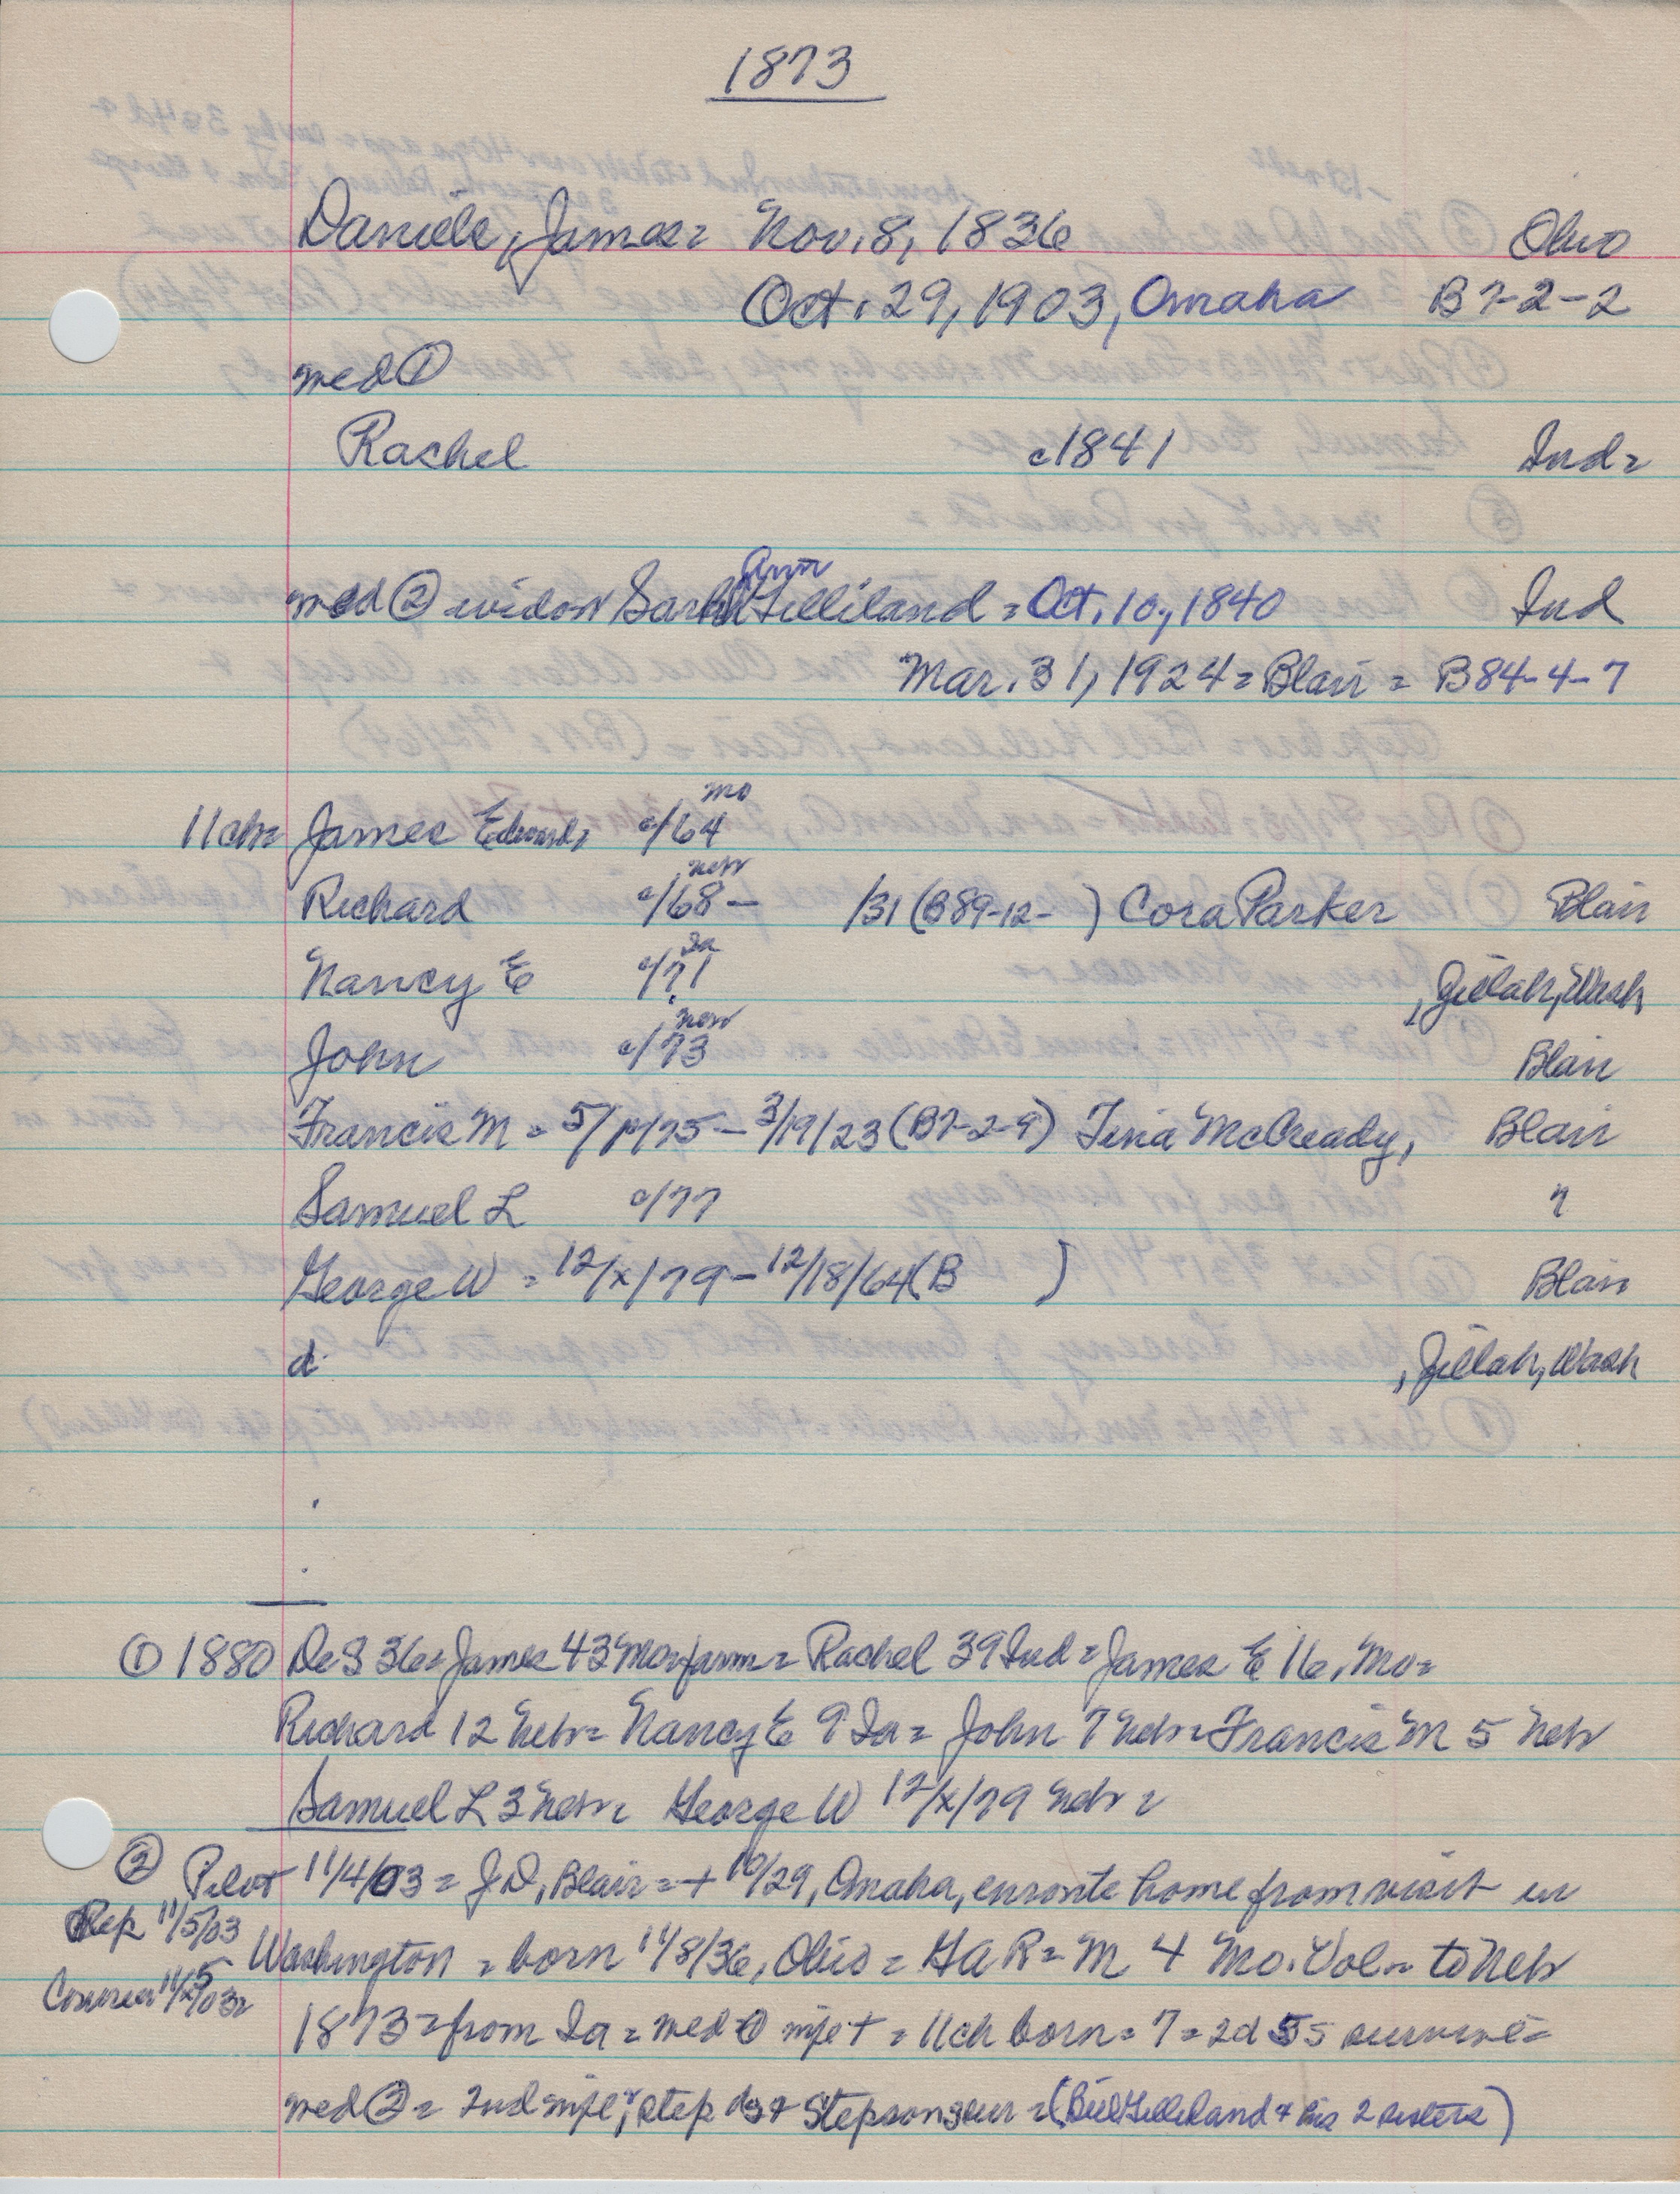 1873
Daniels, James = Nov. 8, 1836 Ohio
Oct. 29, 1903, Omaha B7-2-2
med ①
Rachel c1841 Ind =
Ann
med ② widow Sarah Gilliland = Oct. 10, 1840 Ind
Mar. 31, 1924 = Blair = B84-4-7
mo
11 ch = James Edward, c/64
neb
Richard c/68 - /31 (B89-12- ) Cora Parker Blair
Ia
Nancy E c/71 , Zillah, Wash
neb
John c/73 Blair
Francis M = 5/ /75 - 3/19/23 (B7-2-9) Tina McCready, Blair
Samuel L c/77 ?
George W = 12/x/79 - 12/18/64 (B ) Blair
d. , Zillah, Wash
① 1880 DeS 36 = James 43 Mo = farm = Rachel 39 Ind = James E 16, Mo =
Richard 12 Neb = Nancy E 9 Ia = John 7 Neb = Francis M 5 Neb
Samuel L 3 Neb = George W 12/x/79 Neb =
② Pilot 11/4/03 = J.D, Blair = + 10/29, Omaha, enroute home from visit in
Rep 11/5/03
Washington = born 11/8/36, Ohio = GAR = M 4 Mo. Vol = to Neb
Courier 11/5/03 =
1873 = from Ia = med ① wife + = 11 ch born = 7 = 2d 5s survive =
med ② = 2nd wife, step ds + stepson sur = (Bill Gilliland + his 2 sisters)